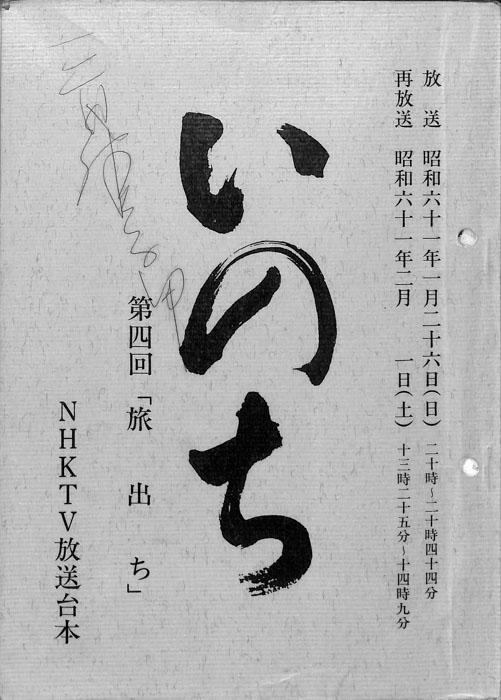 放　送　昭和六十一年一月二十六日(日)　二十時～二十時四十四分
再放送　昭和六十一年二月　　一日(土)　十三時二十五分～十四時九分
いのち
第四回「旅　出　ち」
NHKTV放送台本